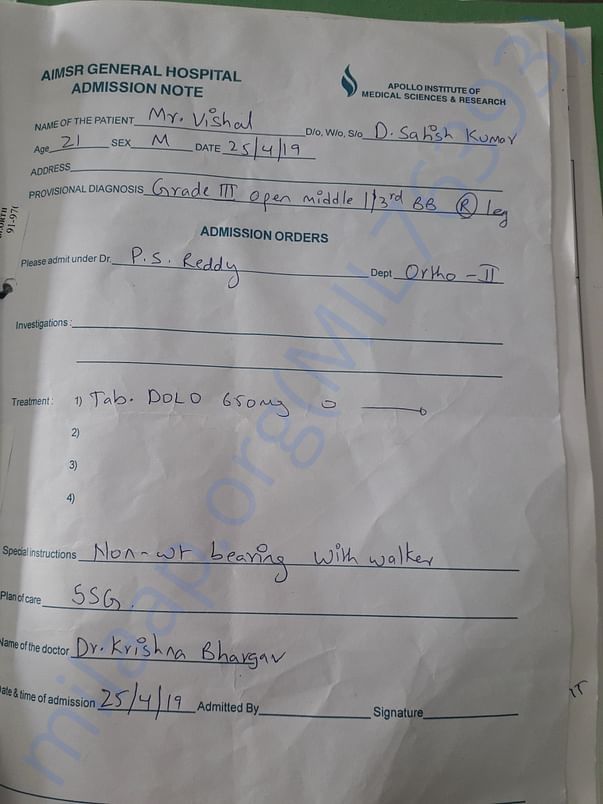 AIMSR GENERAL HOSPITAL
ADMISSION NOTE
APOLLO INSTITUTE OF
MEDICAL SCIENCES & RESEARCH
NAME OF THE PATIENT Mr. Vishal D/o, W/o, S/o D. Satish Kumar
Age 21 SEX M DATE 25/4/19
ADDRESS
PROVISIONAL DIAGNOSIS Grade III open middle 1/3rd BB (R) leg
ADMISSION ORDERS
Please admit under Dr. P.S. Reddy Dept Ortho - II
Investigations :
Treatment : 1) Tab. DOLO 650mg
2)
3)
4)
Special instructions Non-wt bearing with walker
Plan of care SSG.
Name of the doctor Dr. Krishna Bhargav
Date & time of admission 25/4/19 Admitted By Signature
milaap.org(MIL763993)